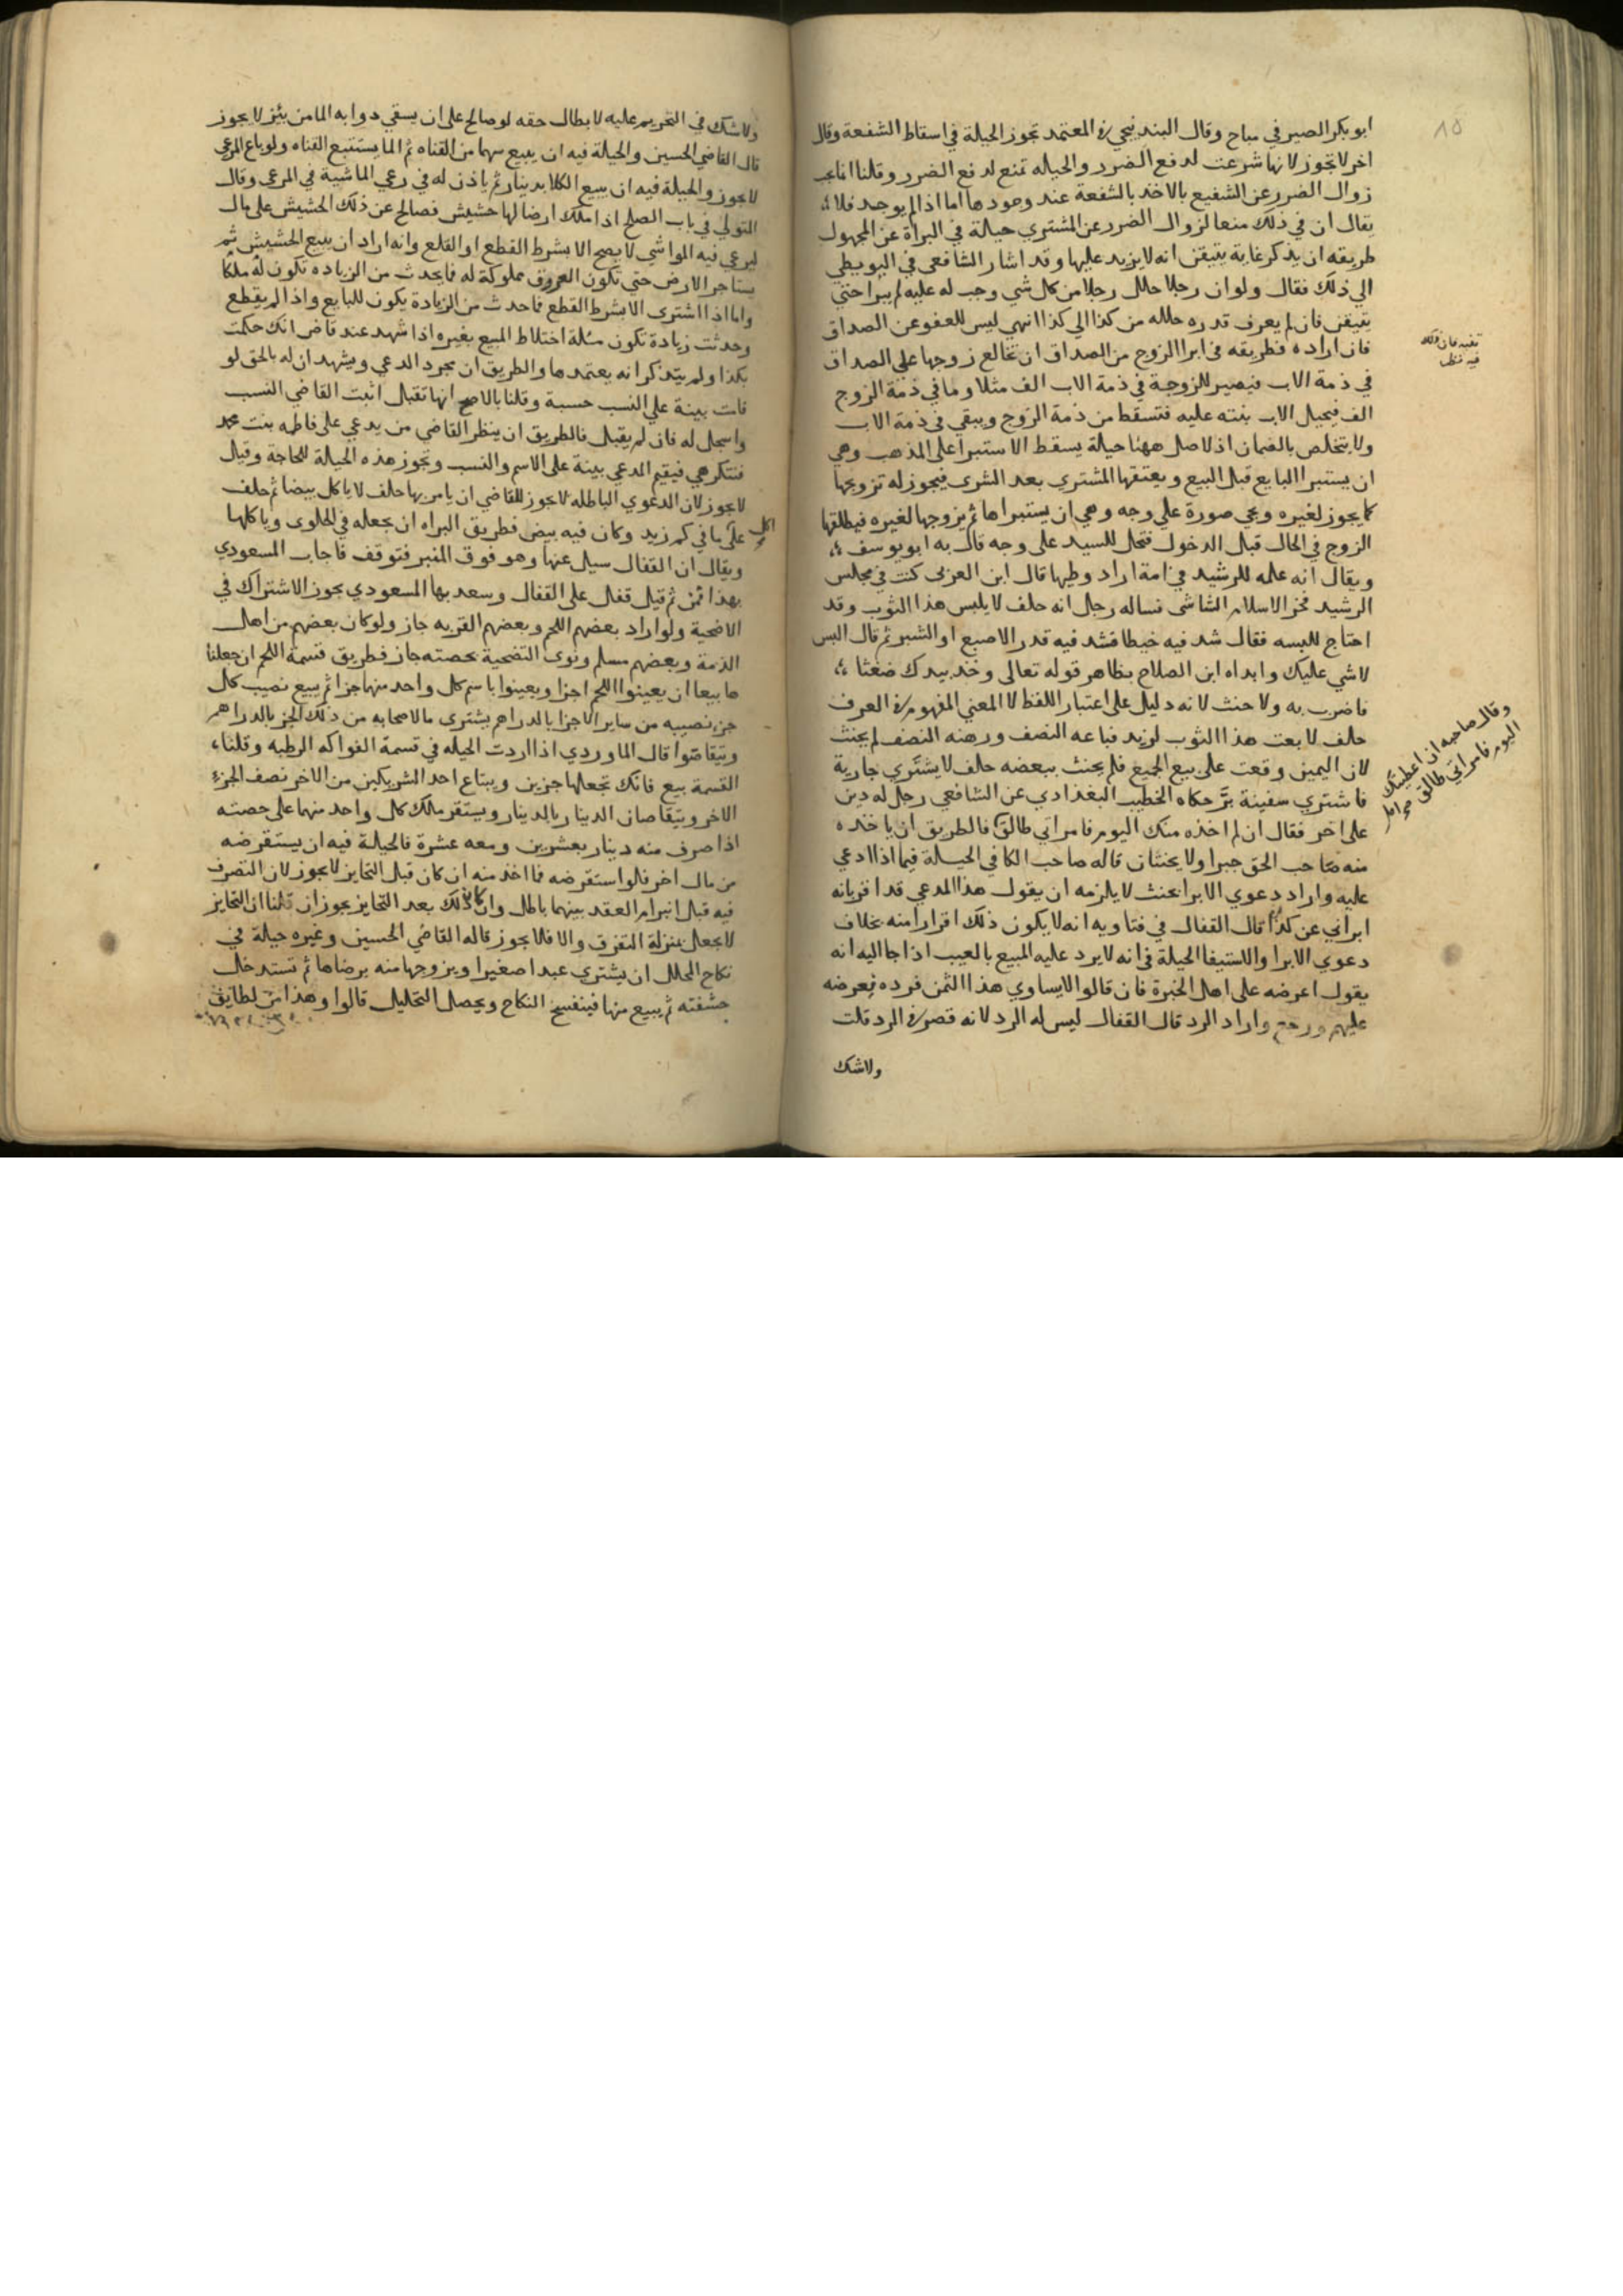 ١٥
ابو بكر الصيرفي مباح وقال البندنيجي في المعتمد تجوز الحيلة في اسقاط الشفعة وقال
اخر لا تجوز لانها شرعت لدفع الضرر والحيله تمنع لدفع الضرر وقلنا انما يجب
زوال الضرر عن الشفيع بالاخذ بالشفعة عند وجودها اما اذا لم يوجد فلا
يقال ان في ذلك منعا لزوال الضرر عن المشتري حيلة في البراة عن المجهول
طريقه ان يذكر غاية يتيقن انه لا يزيد عليها وقد اشار الشافعي في البويطي
الي ذلك فقال ولو ان رجلا حلل رجلا من كل شي وجب له عليه لم يبرا حتي
يتيقن فان لم يعرف قدره حلله من كذا الي كذا انتهي ليس للعفو عن الصداق
فان اراده فطريقه في ابرا الزوج من الصداق ان تخالع زوجها علي الصداق
في ذمة الاب فيصير للزوجة في ذمة الاب الف مثلا وما في ذمة الزوج
الف فيحيل الاب بنته عليه فتسقط من ذمة الزوج ويبقي في ذمة الاب
ولا يتخلص بالضمان اذ لا اصل ههنا حيلة يسقط الاستبرا على المذهب وهي
ان يستبرا البايع قبل البيع ويعتقها المشتري بعد الشرى فيجوز له تزويجها
كما يجوز لغيره وفي صورة علي وجه وهي ان يستبراها ثم يزوجها لغيره فيطلقها
الزوج في الحال قبل الدخول فتحل للسيد على وجه قال به ابو يوسف
ويقال انه علمه للرشيد في امة اراد وطيها قال ابن العربى كنت في مجلس
الرشيد فخر الاسلام الشاشى فساله رجل انه حلف لا يلبس هذا الثوب وقد
احتاج للبسه فقال شد فيه خيطا فشد فيه قدر الاصبع او الشبر ثم قال البس
لا شي عليك وابداه ابن الصلاح بظاهر قوله تعالى وخذ بيدك ضغثا
فاضرب به ولا تحنث لانه دليل على اعتبار اللفظ لا المعني المفهوم في العرف
حلف لا بعت هذا الثوب لزيد فباعه النصف ورهنه النصف لم يحنث
لان اليمين وقعت على بيع الجميع فلم يحنث ببعضه حلف لا يشتري جارية
فاشتري سفينة بر حكاه الخطيب البغدادي عن الشافعي رجل له دين
على اخر فقال ان لم اخذه منك اليوم فامراتي طالق فالطريق ان ياخذه
منه صاحب الحق جبرا ولا يحنثان قاله صاحب الكافي الحيلة فيما اذا ادعي
عليه واراد دعوي الابرا بحنث لا يلزمه ان يقول هذا المدعي قد اقر بانه
ابراني عن كذا قال القفال في فتاويه انه لا يكون ذلك اقرارا منه بخلاف
دعوي الابرا والاستيفا الحيلة في انه لا يرد عليه المبيع بالعيب اذا جا اليه انه
يقول اعرضه على اهل الخبرة فان قالوا لا يساوي هذا الثمن فرده فعرضه
عليهم ورجع واراد الرد قال القفال ليس له الرد لانه قصر في الرد قلت
ولاشك
فيه نظر
وقال صاحبه ان اعطيتك
اليوم فامراتي طالق
ولاشك في التحريم عليه لابطال حقه لو صالح على ان يسقي دوابه الما من بئر لا يجوز
قال القاضي الحسين والحيلة فيه ان يبيع سهما من القناه ثم الما يستتبع القناه ولو باع المرعي
لا يجوز والحيلة فيه ان يبيع الكلا بدينار ثم ياذن له في رعي الماشية في المرعي وقال
المتولي في باب الصلح اذا ملك ارضا لها حشيش فصالح عن ذلك الحشيش على مال
ليرعي فيه المواشي لا يصح الا بشرط القطع او القلع وانه اراد ان يبيع الحشيش ثم
يستاجر الارض حتي تكون العروق مملوكة له فما يحدث من الزياده تكون له ملكا
واما اذا اشتري الا بشرط القطع فما حدث من الزيادة يكون للبايع واذا لم يقطع
وحدثت زيادة تكون مسئلة اختلاط المبيع بغيره اذا شهد عند قاض انك حكمت
بكذا ولم يتذكر انه يعتمدها والطريق ان يجرد الدعي ويشهد ان له بالحق لو
قامت بينة علي النسب حسبة وقلنا بالاصح انها تقبل اثبت القاضي النسب
واسجل له فان لم يقبل فالطريق ان ينظر القاضي من يدعي على فاطمه بنت محمد
فتنكر هي فيقيم المدعي بينة على الاسم والنسب وتجوز هذه الحيلة للحاجة وقيل
لا يجوز لان الدعوي الباطله لا يجوز للقاضي ان يامر بها حلف لا ياكل بيضا ثم حلف
اكل
علي ما في كم زيد وكان فيه بيض فطريق البراه ان يجعله في الحلوى وياكلها
ويقال ان القفال سيل عنها وهو فوق المنبر فتوقف فاجاب المسعودي
بهذا فمن ثم قيل قفل على القفال وسعد بها المسعودي يجوز الاشتراك في
الاضحية ولو اراد بعضهم اللحم وبعضهم القربه جاز ولو كان بعضهم من اهل
الذمة وبعضهم مسلم ونوى التضحية بحصته جاز فطريق قسمة اللحم ان جعلنا
ها بيعا ان يعينوا اللحم اجزا ويعينوا باسم كل واحد منها جزا ثم يبيع نصيب كل
جزء نصيبه من ساير الاجزا بالدراهم يشترى ما لاصحابه من ذلك الجز بالدراهم
ويتقاصوا قال الماوردي اذا اردت الحيله في قسمة الفواكه الرطبه وقلنا
القسمة بيع فانك تجعلها جزين ويبتاع احد الشريكين من الاخر نصف الجزء
الاخر ويتقاصان الدينار بالدينار ويستقر ملك كل واحد منهما على حصته
اذا صرف منه دينار بعشرين ومعه عشرة فالحيلة فيه ان يستقرضه
من مال اخر فالوا استقرضه فما اخذ منه ان كان قبل التخاير لا يجوز لان التصرف
فيه قبل انبرام العقد بينهما باطل وان كان ذلك بعد التخاير يجوز ان قلنا ان التخاير
لا يجعل بمنزلة التفرق والا فلا يجوز قاله القاضي الحسين وغيره حيلة في
نكاح المحلل ان يشتري عبدا صغيرا ويزوجها منه برضاها ثم تستدخل
حشفته ثم يبيع منها فينفسخ النكاح ويحصل التحليل قالوا وهذا من لطايف